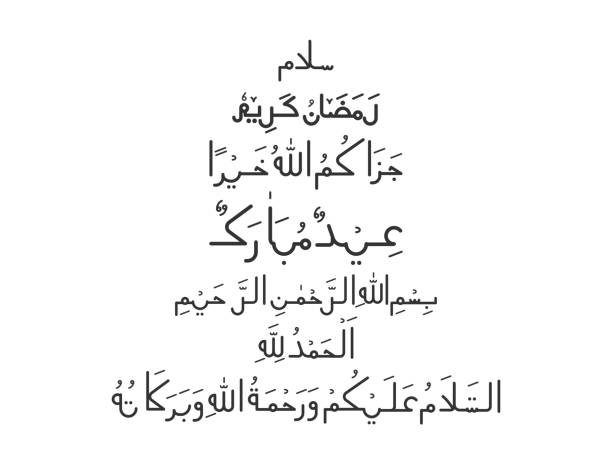 سلام
رَمَضَانُ كَرِيْمٌ
جَزَا كُمُ اللّٰهُ خَيْرًا
عِيْدٌ مُبَارَكٌ
بِسْمِ اللّٰهِ الرَّحْمٰنِ الرَّحِيْمِ
اَلْحَمْدُ لِلَّهِ
السَّلَامُ عَلَيْكُمْ وَرَحْمَةُ اللّٰهِ وَبَرَكَاتُهُ